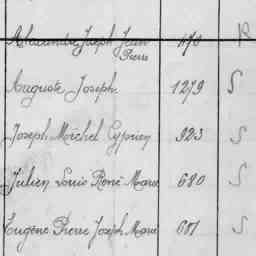 Alexandre Joseph Jean Pierre 470 R
Auguste Joseph 1279 S
Joseph Michel Cyprien 923 S
Julien Louis René Marie 680 S
Eugène Pierre Joseph Marie 601 S